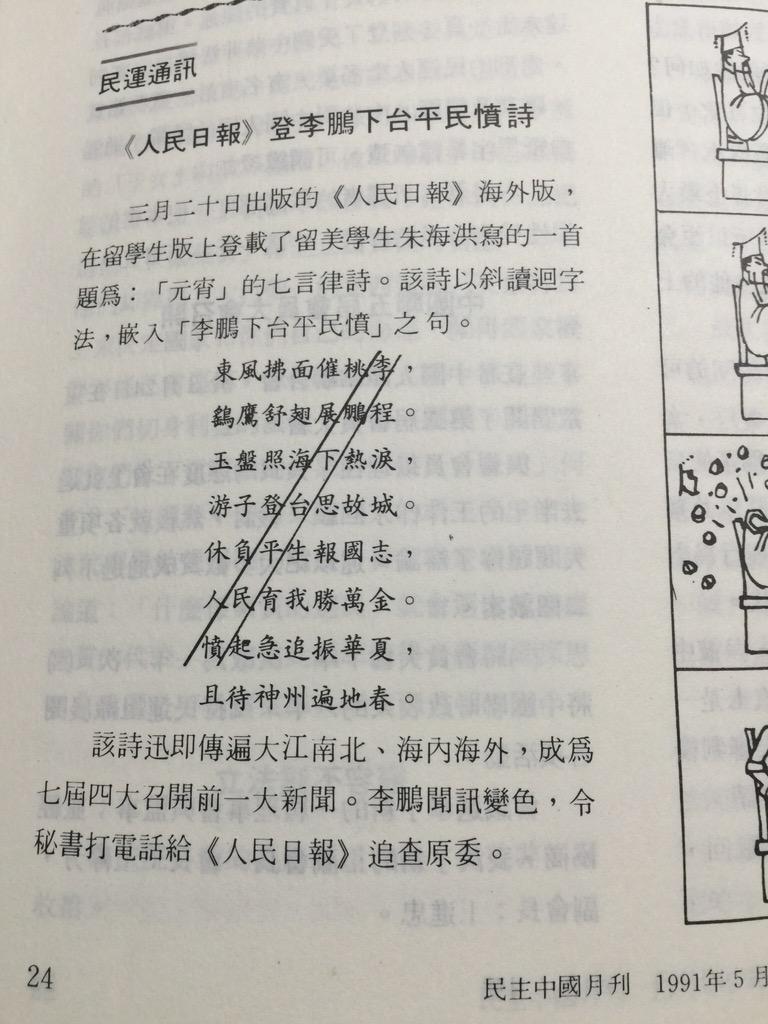 民運通訊
《人民日報》登李鵬下台平民憤詩
三月二十日出版的《人民日報》海外版，
在留學生版上登載了留美學生朱海洪寫的一首
題爲：「元宵」的七言律詩。該詩以斜讀迴字
法，嵌入「李鵬下台平民憤」之句。
東風拂面催桃李，
鷂鷹舒翅展鵬程。
玉盤照海下熱淚，
游子登台思故城。
休負平生報國志，
人民育我勝萬金。
憤起急追振華夏，
且待神州遍地春。
該詩迅即傳遍大江南北、海內海外，成爲
七屆四大召開前一大新聞。李鵬聞訊變色，令
秘書打電話給《人民日報》追查原委。
24
民主中國月刊 1991年5月